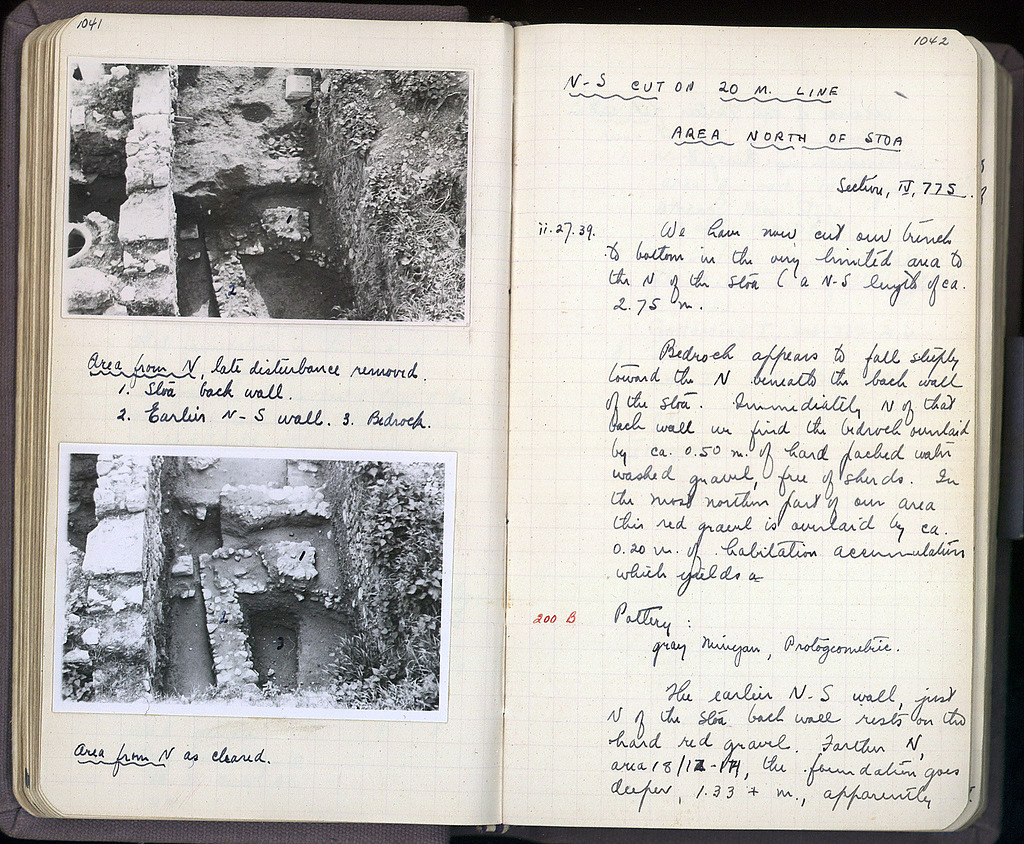 1041
Area from N, late disturbance removed.
1. Stoa back wall.
2. Earlier N-S wall. 3. Bedrock.
Area from N as cleared.
1
2
1
2
3
1042
N-S CUT ON 20 M. LINE
AREA NORTH OF STOA
Section, IV, 775.
ii.27.39. We have now cut our trench
to bottom in the very limited area to
the N of the Stoa (a N-S length of ca.
2.75 m.
Bedrock appears to fall steeply
toward the N beneath the back wall
of the Stoa. Immediately N of that
back wall we find the bedrock overlaid
by ca. 0.50 m. of hard packed water
washed gravel, free of sherds. In
the most northern part of our area
this red gravel is overlaid by ca.
0.20 m. of habitation accumulation
which yields
200 B Pottery:
gray Minyan, Protogeometric.
The earlier N-S wall, just
N of the Stoa back wall rests on the
hard red gravel. Farther N,
area 18/12-14, the foundation goes
deeper, 1.33 + m., apparently